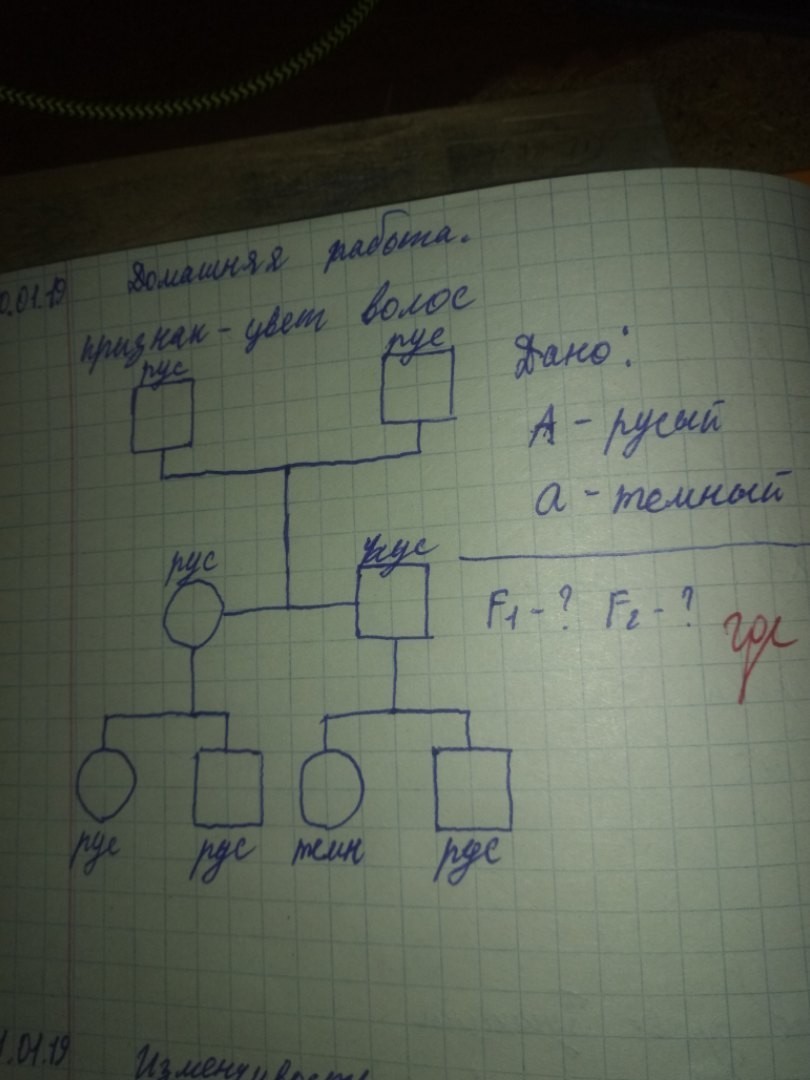 0.01.19 Домашняя работа.
признак - цвет волос
рус рус
Дано:
А - русый
а - темный
рус рус
F1 - ? F2 - ?
рус рус темн рус
1.01.19 Изменчивость